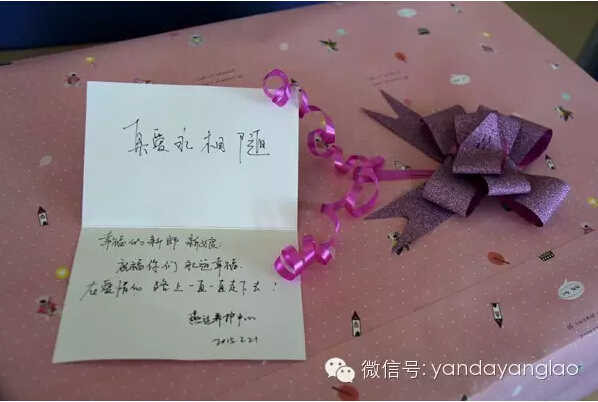 真爱永相随
幸福的新郎 新娘:
祝福你们永远幸福.
在爱情的路上一直一直走下去!
燕达养护中心
2015.3.21
微信号: yandayanglao